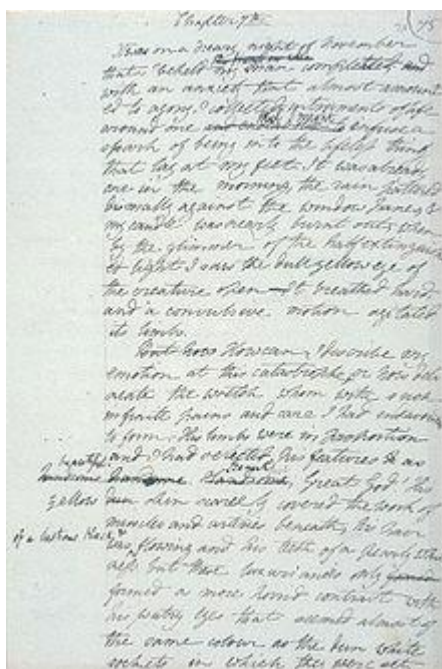 Chapter 7th
It was on a dreary night of November
that I beheld my man completed, and
with an anxiety that almost amount
ed to agony, I collected instruments of life
around me that I might infuse a
spark of being into the lifeless thing
that lay at my feet. It was already
one in the morning, the rain pattered
dismally against the window panes, &
my candle was nearly burnt out, when
by the glimmer of the half extinguish
ed light I saw the dull yellow eye of
the creature open — It breathed hard,
and a convulsive motion agitated
its limbs.
But how How can I describe my
emotion at this catastrophe, or how deli
neate the wretch whom with such
infinite pains and care I had endeavoured
to form. His limbs were in proportion
and I had selected his features as
beautiful
handsome handsome Handsome, Great God! His
yellow dun skin scarcely covered the work of
muscles and arteries beneath; his hair
of a lustrous black &
was flowing and his teeth of a pearly white
ness but these luxuriances only
formed a more horrid contrast with
his watry eyes that seemed almost of
the same colour as the dun white
sockets in which they were set